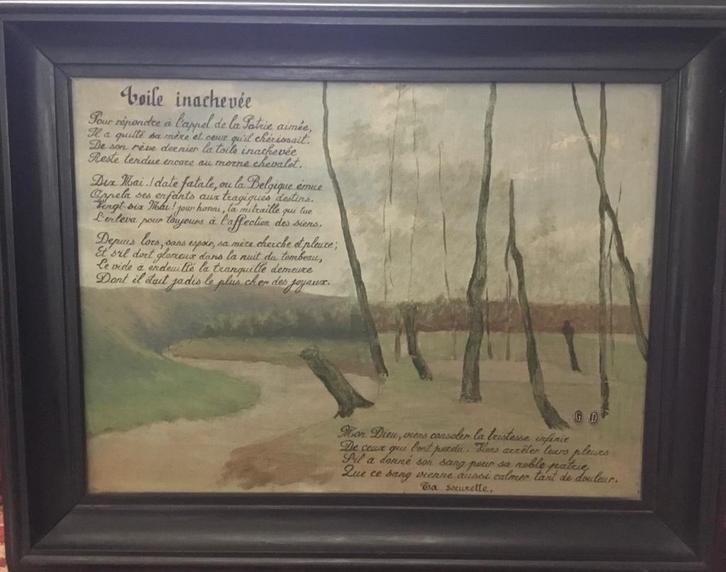 Toile inachevée
Pour répondre à l'appel de la Patrie aimée,
Il a quitté sa mère et ceux qu'il chérissait.
De son rêve dernier la toile inachevée
Reste tendue encore au morne chevalet.
Dix Mai.! date fatale, ou la Belgique émue
Appela ses enfants aux tragiques destins.
Vingt-six Mai! jour honni, la mitraille qui tue
L'enleva pour toujours à l'affection des siens.
Depuis lors, sans espoir, sa mère cherche et pleure;
Et s'il dort glorieux dans la nuit du tombeau,
Le vide a endeuillé la tranquille demeure
Dont il était jadis le plus cher des joyaux.
G D
Mon Dieu, viens consoler la tristesse infinie
De ceux qui l'ont perdu. Viens arrêter leurs pleurs
S'il a donné son sang pour sa noble patrie,
Que ce sang vienne aussi calmer tant de douleur.
Ta sœurette.